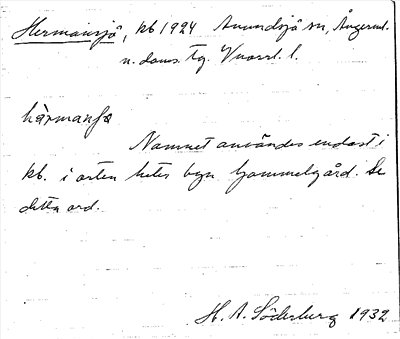 Hermansjö, kb 1924 Anundsjö sn, Ångerml.
n. doms. tg. Vnorrl. l.
härmanʃø
Namnet användes endast i
kb. i orten heter byn Gammelgård. Se
detta ord.
H. A. Söderberg 1932